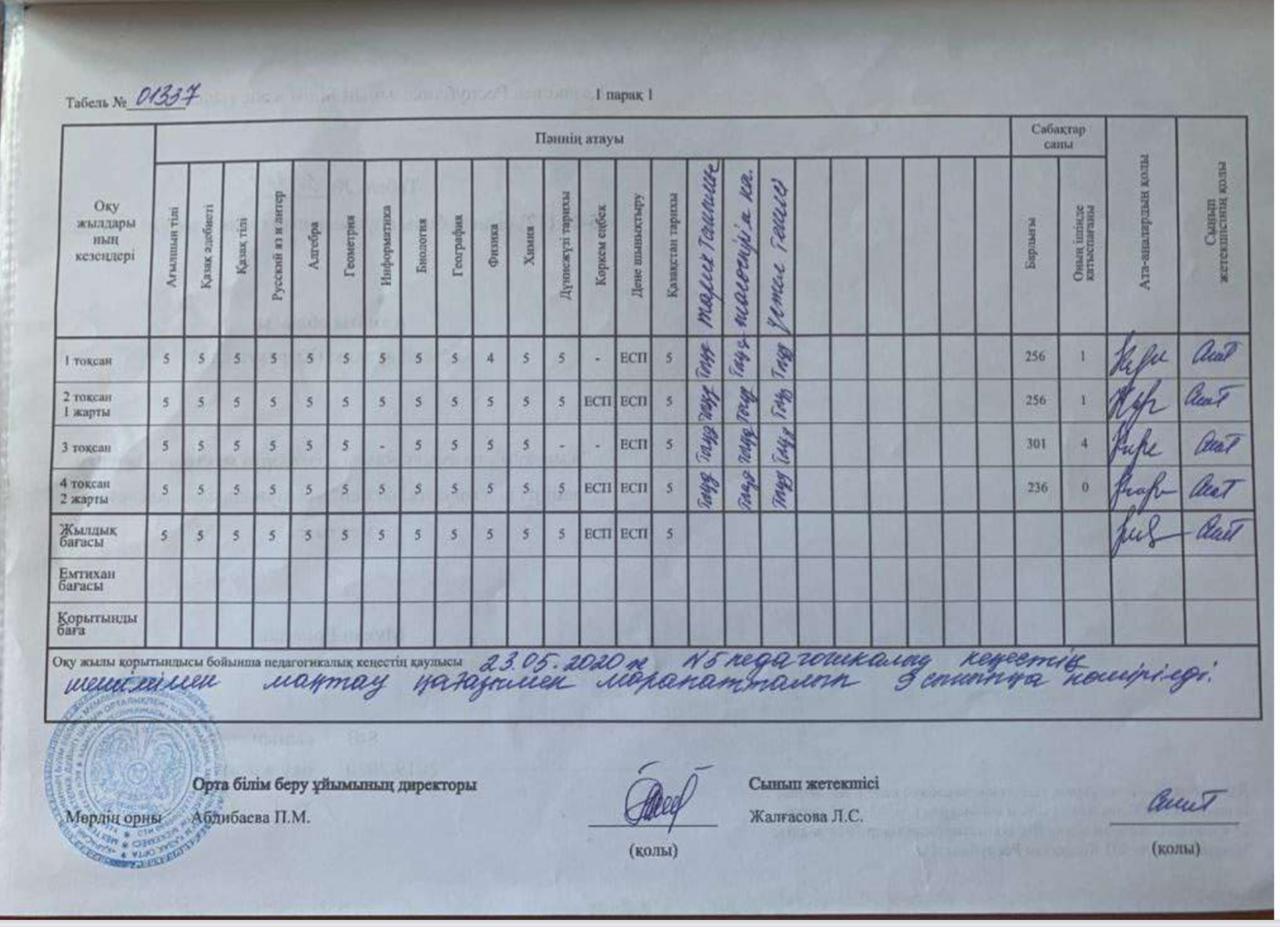 Табель № 01337
1 парақ 1
Оқу жылдары ның кезеңдері
Пәннің атауы
Сабақтар саны
Ата-аналардың қолы
Сынып жетекшісінің қолы
Ағылшын тілі
Қазақ әдебиеті
Қазақ тілі
Русский яз и литер
Алгебра
Геометрия
Информатика
Биология
География
Физика
Химия
Дүниежүзі тарихы
Көркем еңбек
Дене шынықтыру
Қазақстан тарихы
Барлығы
Оның ішінде қатыспағаны
1 тоқсан 5 5 5 5 5 5 5 5 5 4 5 5 - ЕСП 5 256 1
2 тоқсан
1 жарты 5 5 5 5 5 5 5 5 5 5 5 5 ЕСП ЕСП 5 256 1
3 тоқсан 5 5 5 5 5 5 - 5 5 5 5 - - ЕСП 5 301 4
4 тоқсан
2 жарты 5 5 5 5 5 5 5 5 5 5 5 5 ЕСП ЕСП 5 236 0
Жылдық бағасы 5 5 5 5 5 5 5 5 5 5 5 5 ЕСП ЕСП 5
Емтихан бағасы
Қорытынды баға
Оқу жылы қорытындысы бойынша педагогикалық кеңестің қаулысы 23.05.2020 ж №5 педагогикалық кеңестің
шешімімен мақтау қағазымен марапатталып 9 сыныпқа көшірілді.
Орта білім беру ұйымының директоры
Сынып жетекшісі
Мөрдің орны
Абдибаева П.М.
Жалғасова Л.С.
(қолы)
(қолы)